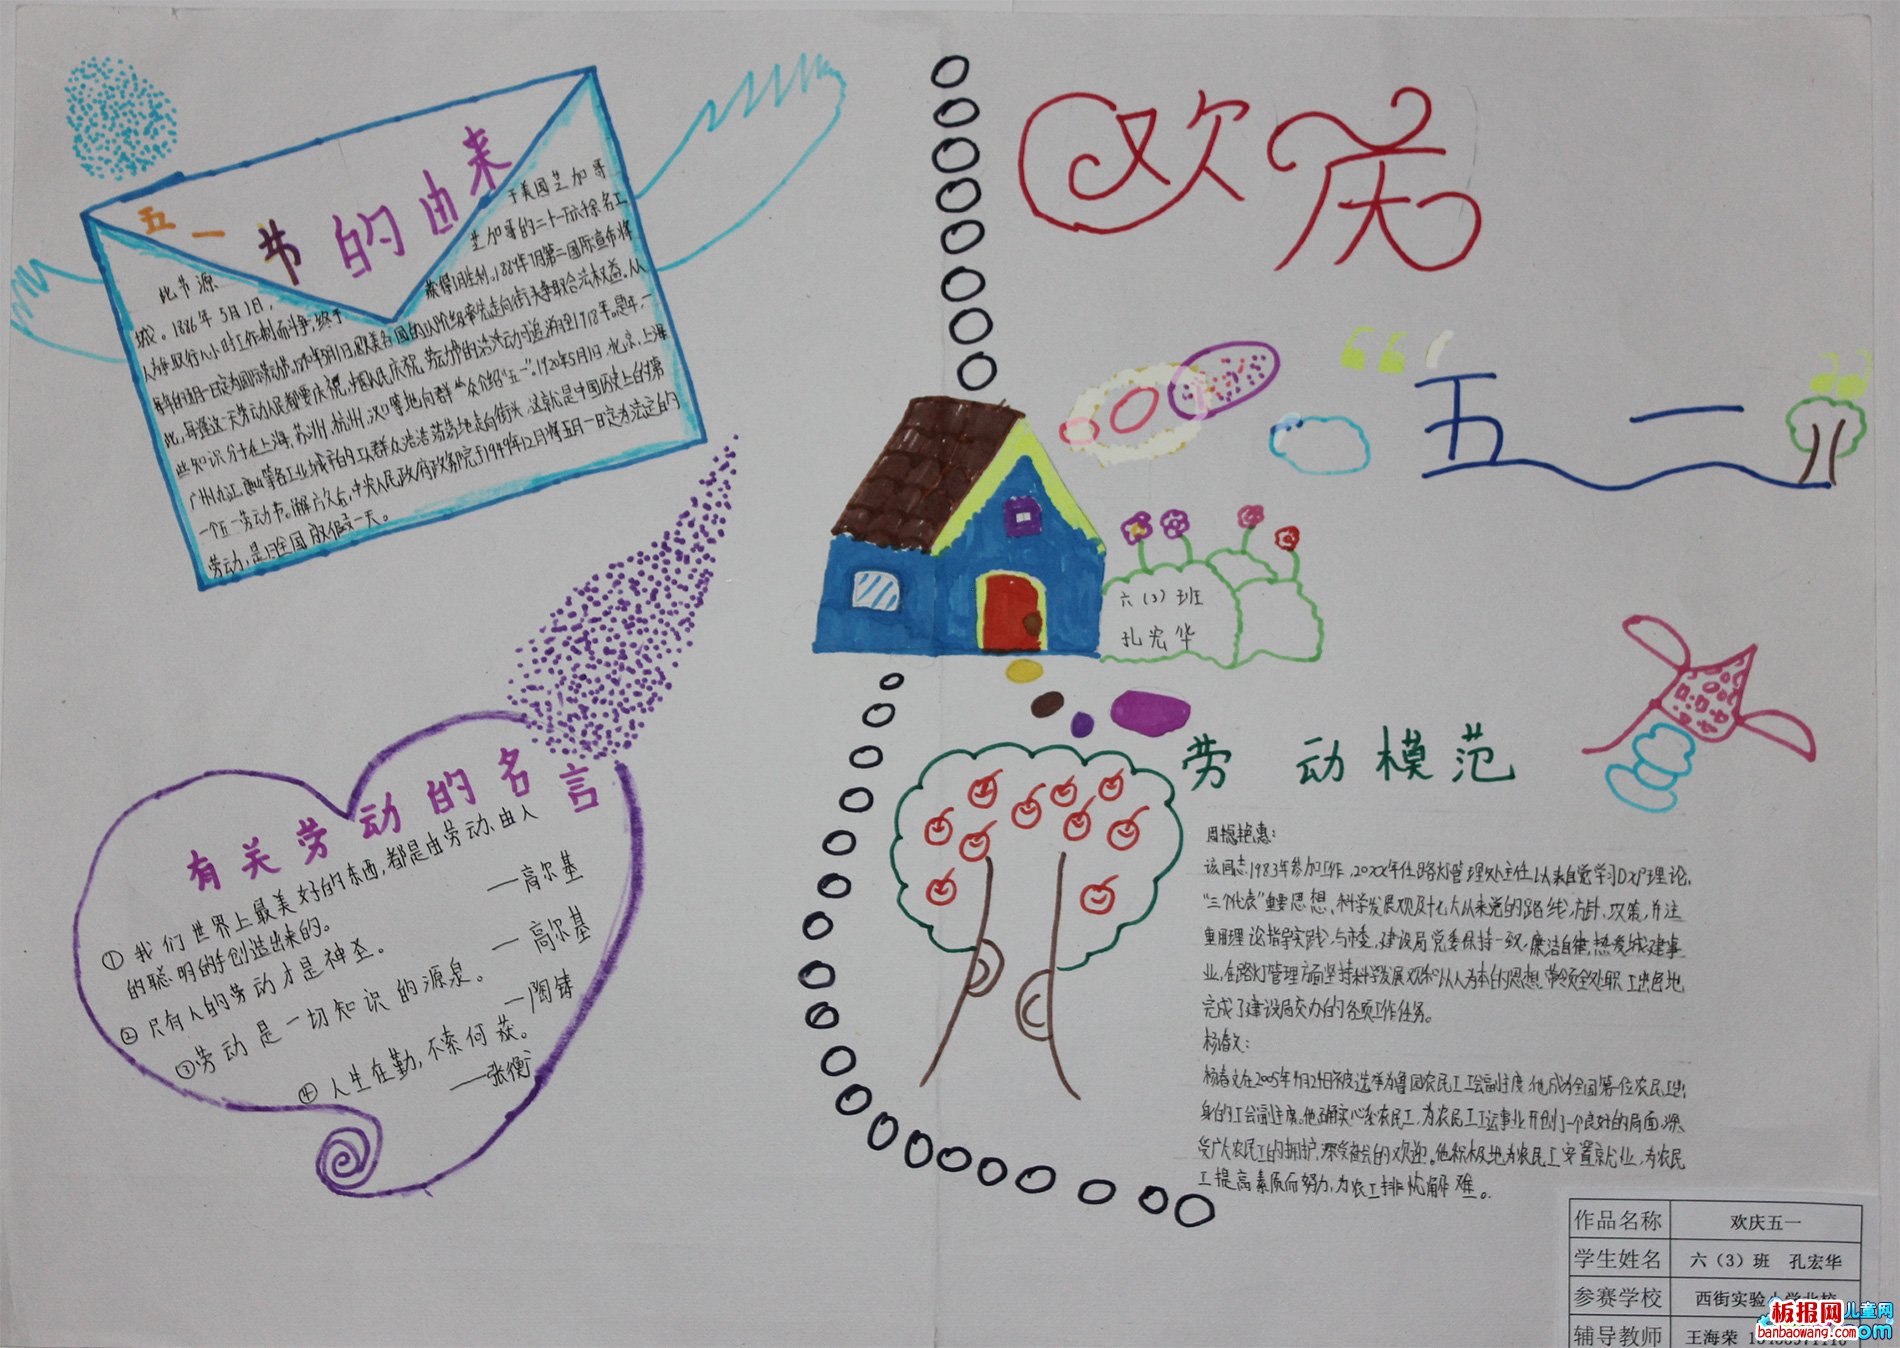 五一节的由来
此节源于美国芝加哥
城。1886年5月1日,芝加哥的二十一万六千余名工
人为争取行八小时工作制而斗争,终于获得了胜利。1889年7月第二国际宣布将
每年的五月一日定为国际劳动节。1890年5月1日欧美各国的工人阶级率先走向街头争取合法权益。从
此,每逢这一天劳动人民都要庆祝。中国人民庆祝劳动节的活动可追溯至1918年。是年,一
些知识分子在上海、苏州、杭州、汉口等地向群众介绍“五一”。1920年5月1日,北京、上海、
广州、九江、唐山等各工业城市的工人群众浩浩荡荡地走向街头,这就是中国历史上的第
一个五一劳动节。解放后,中央人民政府政务院于1949年12月将五月一日定为法定的
劳动,是日全国放假一天。
有关劳动的名言
①我们世界上最美好的东西,都是由劳动、由人
的聪明的手创造出来的。
——高尔基
②只有人的劳动才是神圣。
——高尔基
③劳动是一切知识的源泉。
——陶铸
④人生在勤,不索何获。
——张衡
欢庆
“五一”
六(3)班
孔宏华
劳动模范
该同志1983年参加工作,20XX年任路灯管理处主任以来自觉学习DXP理论,
“三个代表”重要思想、科学发展观及十七大以来党的路线,方针,政策,并注
重用理论指导实践,与市委,建设局党委保持一致,廉洁自律,热爱城建事
业,在路灯管理方面坚持科学发展观和以人为本的思想,带领全处职工出色地
完成了建设局交办的各项工作任务。
杨春文:
身的工会副主席。他确实心系农民工,为农民工工运事业开创了一个良好的局面,深
受广大农民工的拥护,深受社会的欢迎。他积极地为农民工安置就业,为农民
工提高素质而努力,为农工排忧解难。
作品名称 欢庆五一
学生姓名 六(3)班 孔宏华
参赛学校 西街实验小学北校
辅导教师 王海荣
板报网
儿童网
banbaowang.com